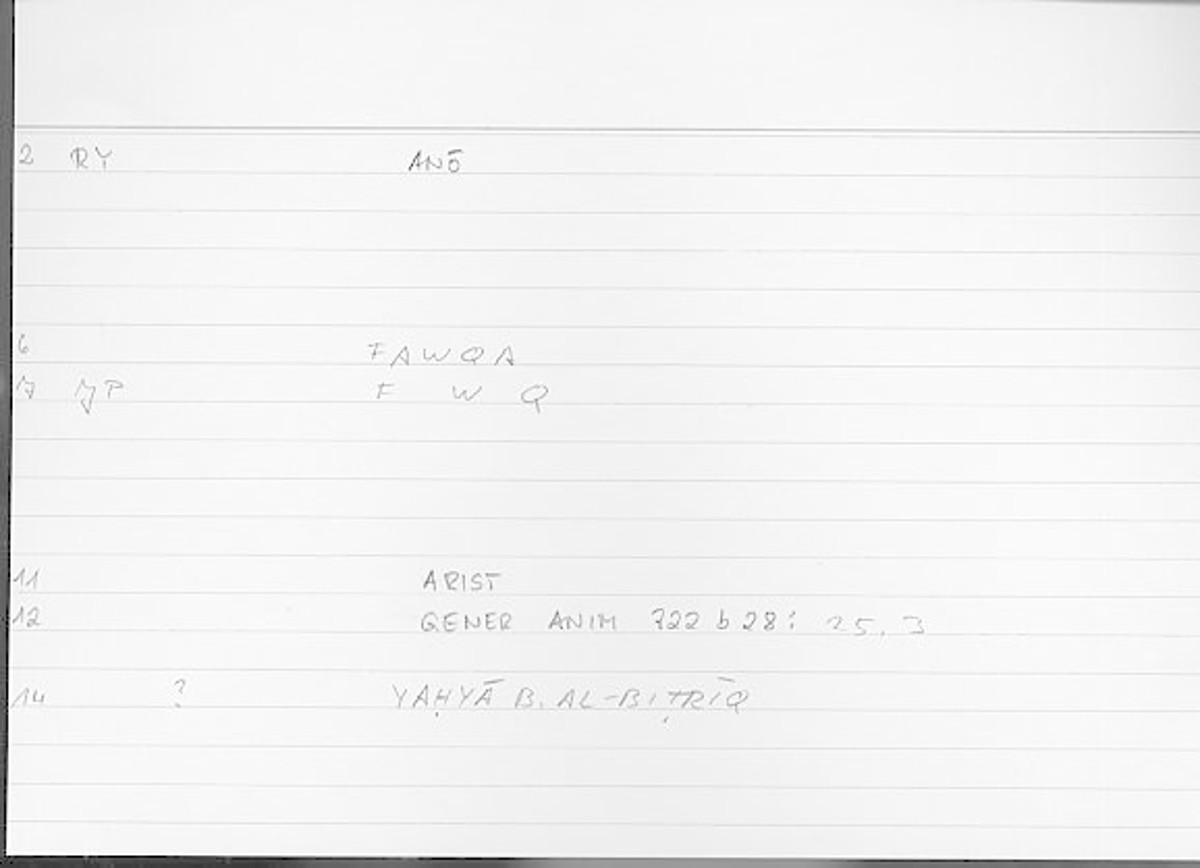 2 RY ANŌ
6 FAWQA
7 JP F W Q
11 ARIST
12 GENER ANIM 722 b 28: 25, 3
14 ? YAḤYĀ B. AL-BIṬRĪQ